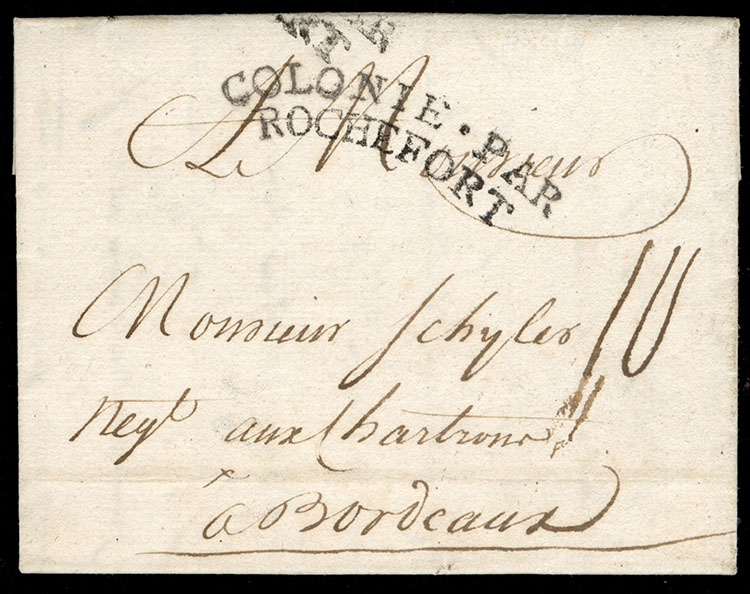 COLONIE · PAR
ROCHEFORT
A Monsieur
Monsieur Schyler 10
Neg.t aux Chartrons
à Bordeaux